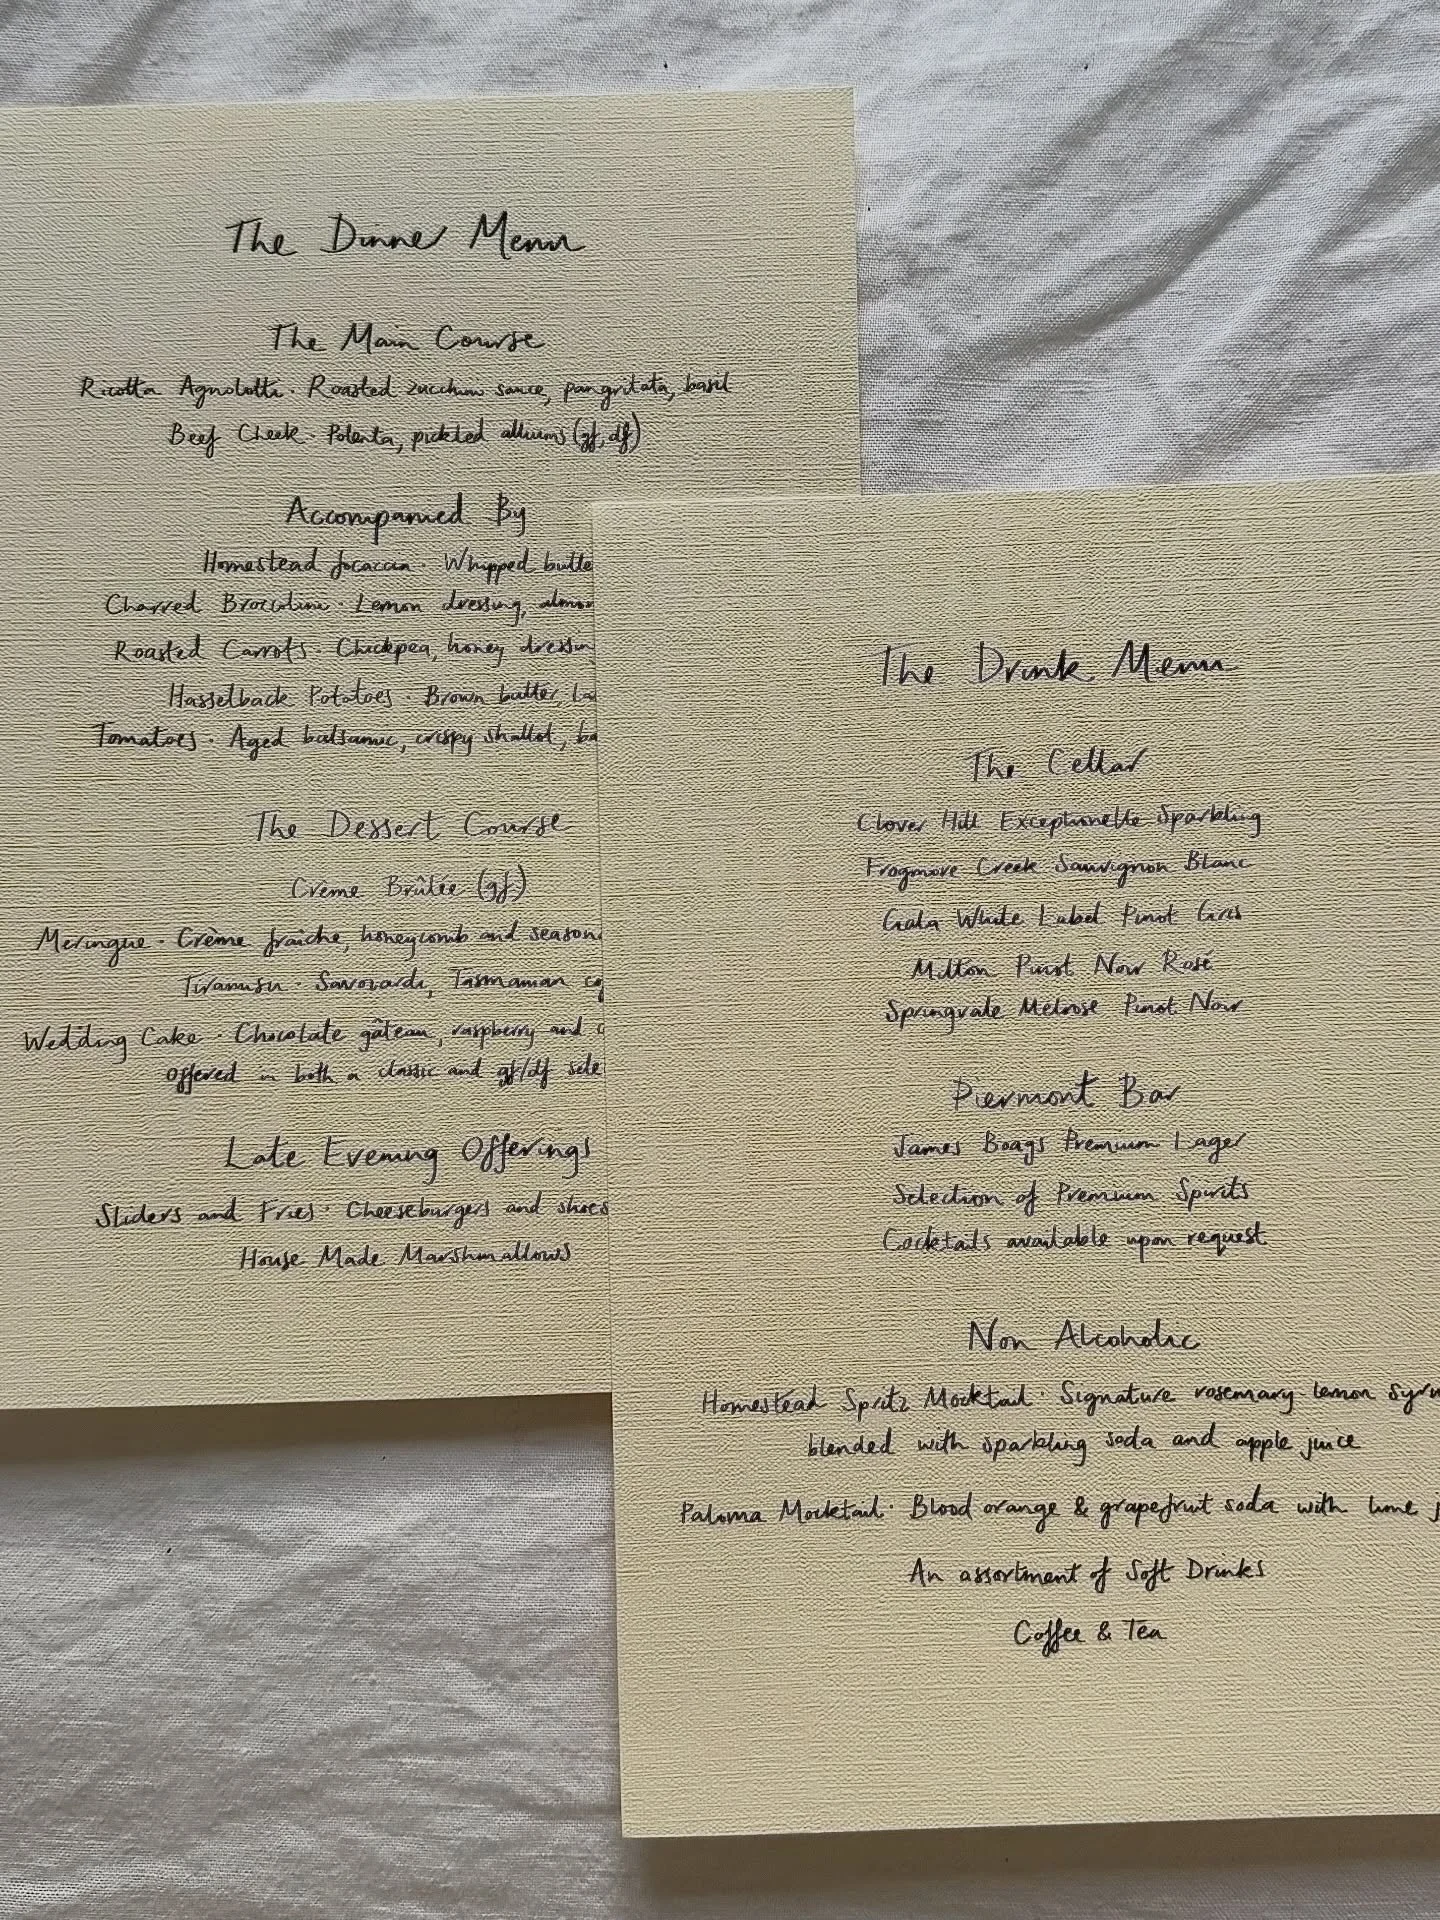 The Dinner Menu
The Main Course
Ricotta Agnolotti · Roasted zucchini sauce, pangritata, basil
Beef Cheek · Polenta, pickled alliums (gf, df)
Accompanied By
Homestead focaccia · Whipped butte
Charred Broccolini · Lemon dressing,
Roasted Carrots · Chickpea, honey dressin
Hasselback Potatoes · Brown butter,
Tomatoes · Aged balsamic, crispy shallot, ba
The Dessert Course
Crème Brûlée (gf)
Meringue · Crème fraîche, honeycomb and season
Tiramisu · Savoiardi, Tasmanian
Wedding Cake · Chocolate gâteau, raspberry and
offered in both a classic and gf/df sele
Late Evening Offerings
Sliders and Fries · Cheeseburgers and shoes
House Made Marshmallows
The Drink Menu
The Cellar
Clover Hill Exceptionelle Sparkling
Frogmore Creek Sauvignon Blanc
Gala White Label Pinot Gris
Milton Pinot Noir Rosé
Springvale Melrose Pinot Noir
Piermont Bar
James Boags Premium Lager
Selection of Premium Spirits
Cocktails available upon request
Non Alcoholic
Homestead Spritz Mocktail · Signature rosemary lemon syru
blended with sparkling soda and apple juice
Paloma Mocktail · Blood orange & grapefruit soda with lime j
An assortment of Soft Drinks
Coffee & Tea